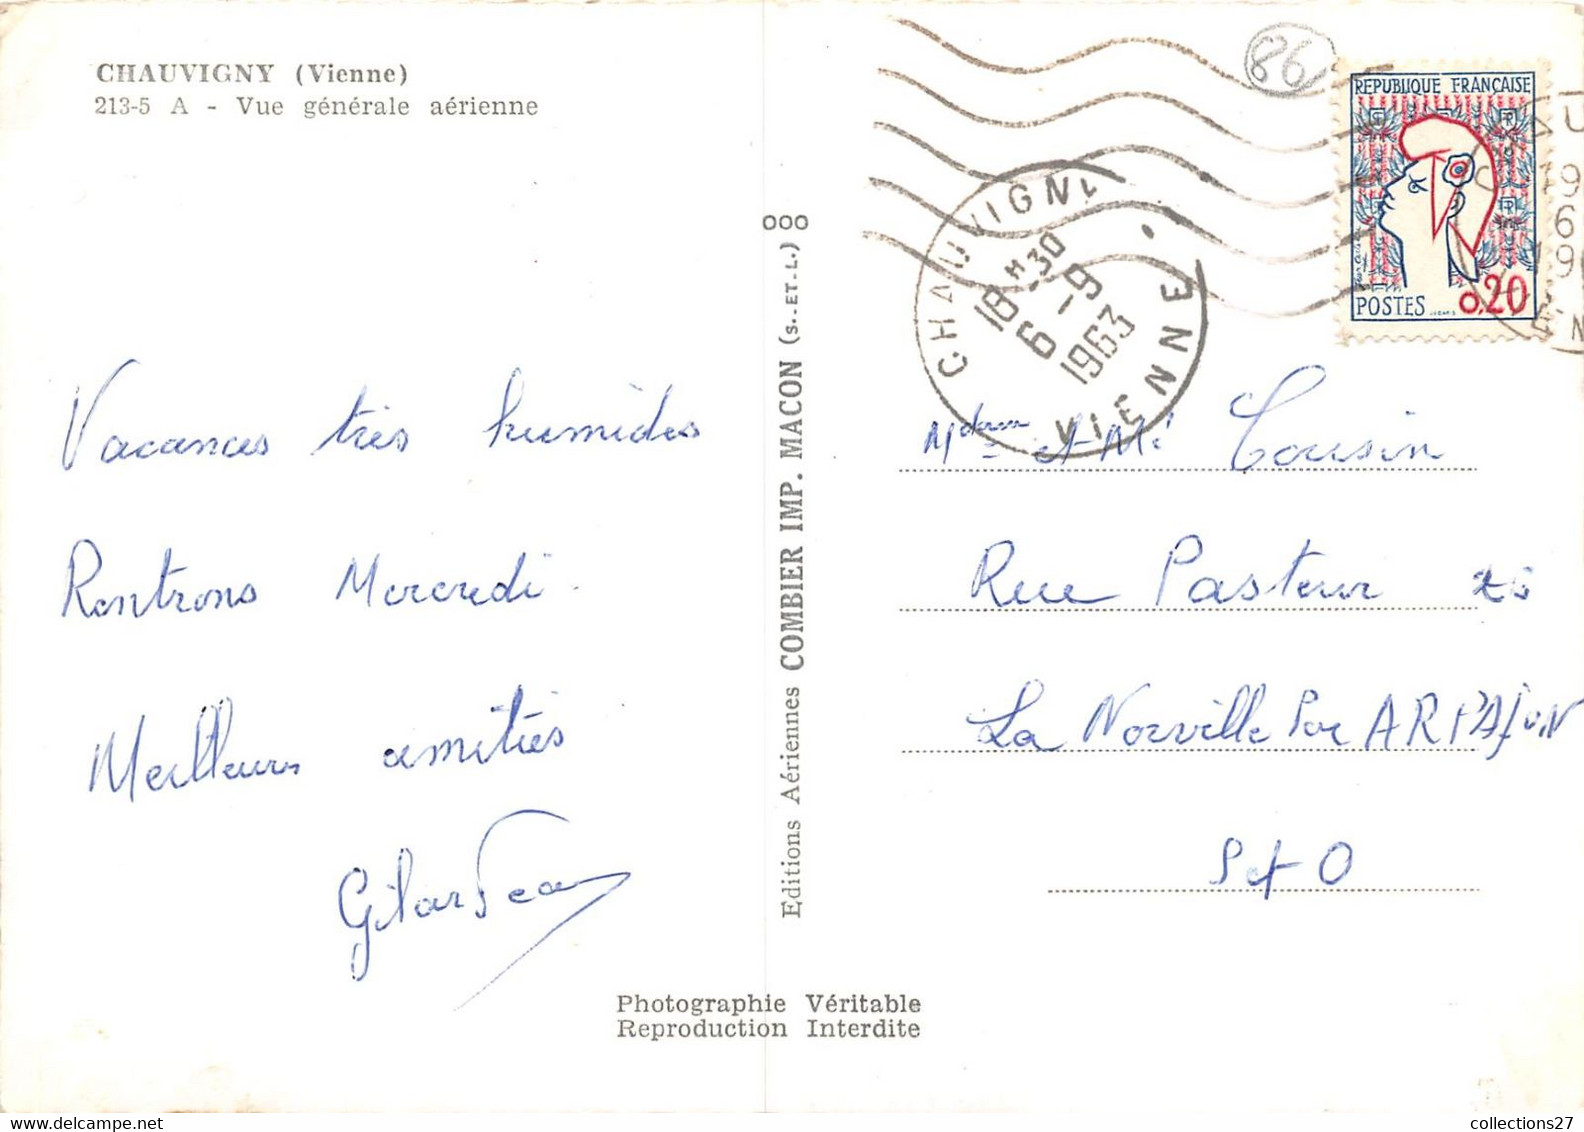 CHAUVIGNY (Vienne)
213-5 A - Vue générale aérienne
Vacances très humides
Rentrons Mercredi
Meilleurs amitiés
Editions Aériennes COMBIER IMP. MACON (S.-ET-L.)
Photographie Véritable
Reproduction Interdite
86
REPUBLIQUE FRANÇAISE
POSTES 0,20
CHAUVIGNY
18 H 30
6 - 9
1963
VIENNE
et Mr Cousin
Rue Pasteur
La Norville Par ARPAJON
S et O
collections27